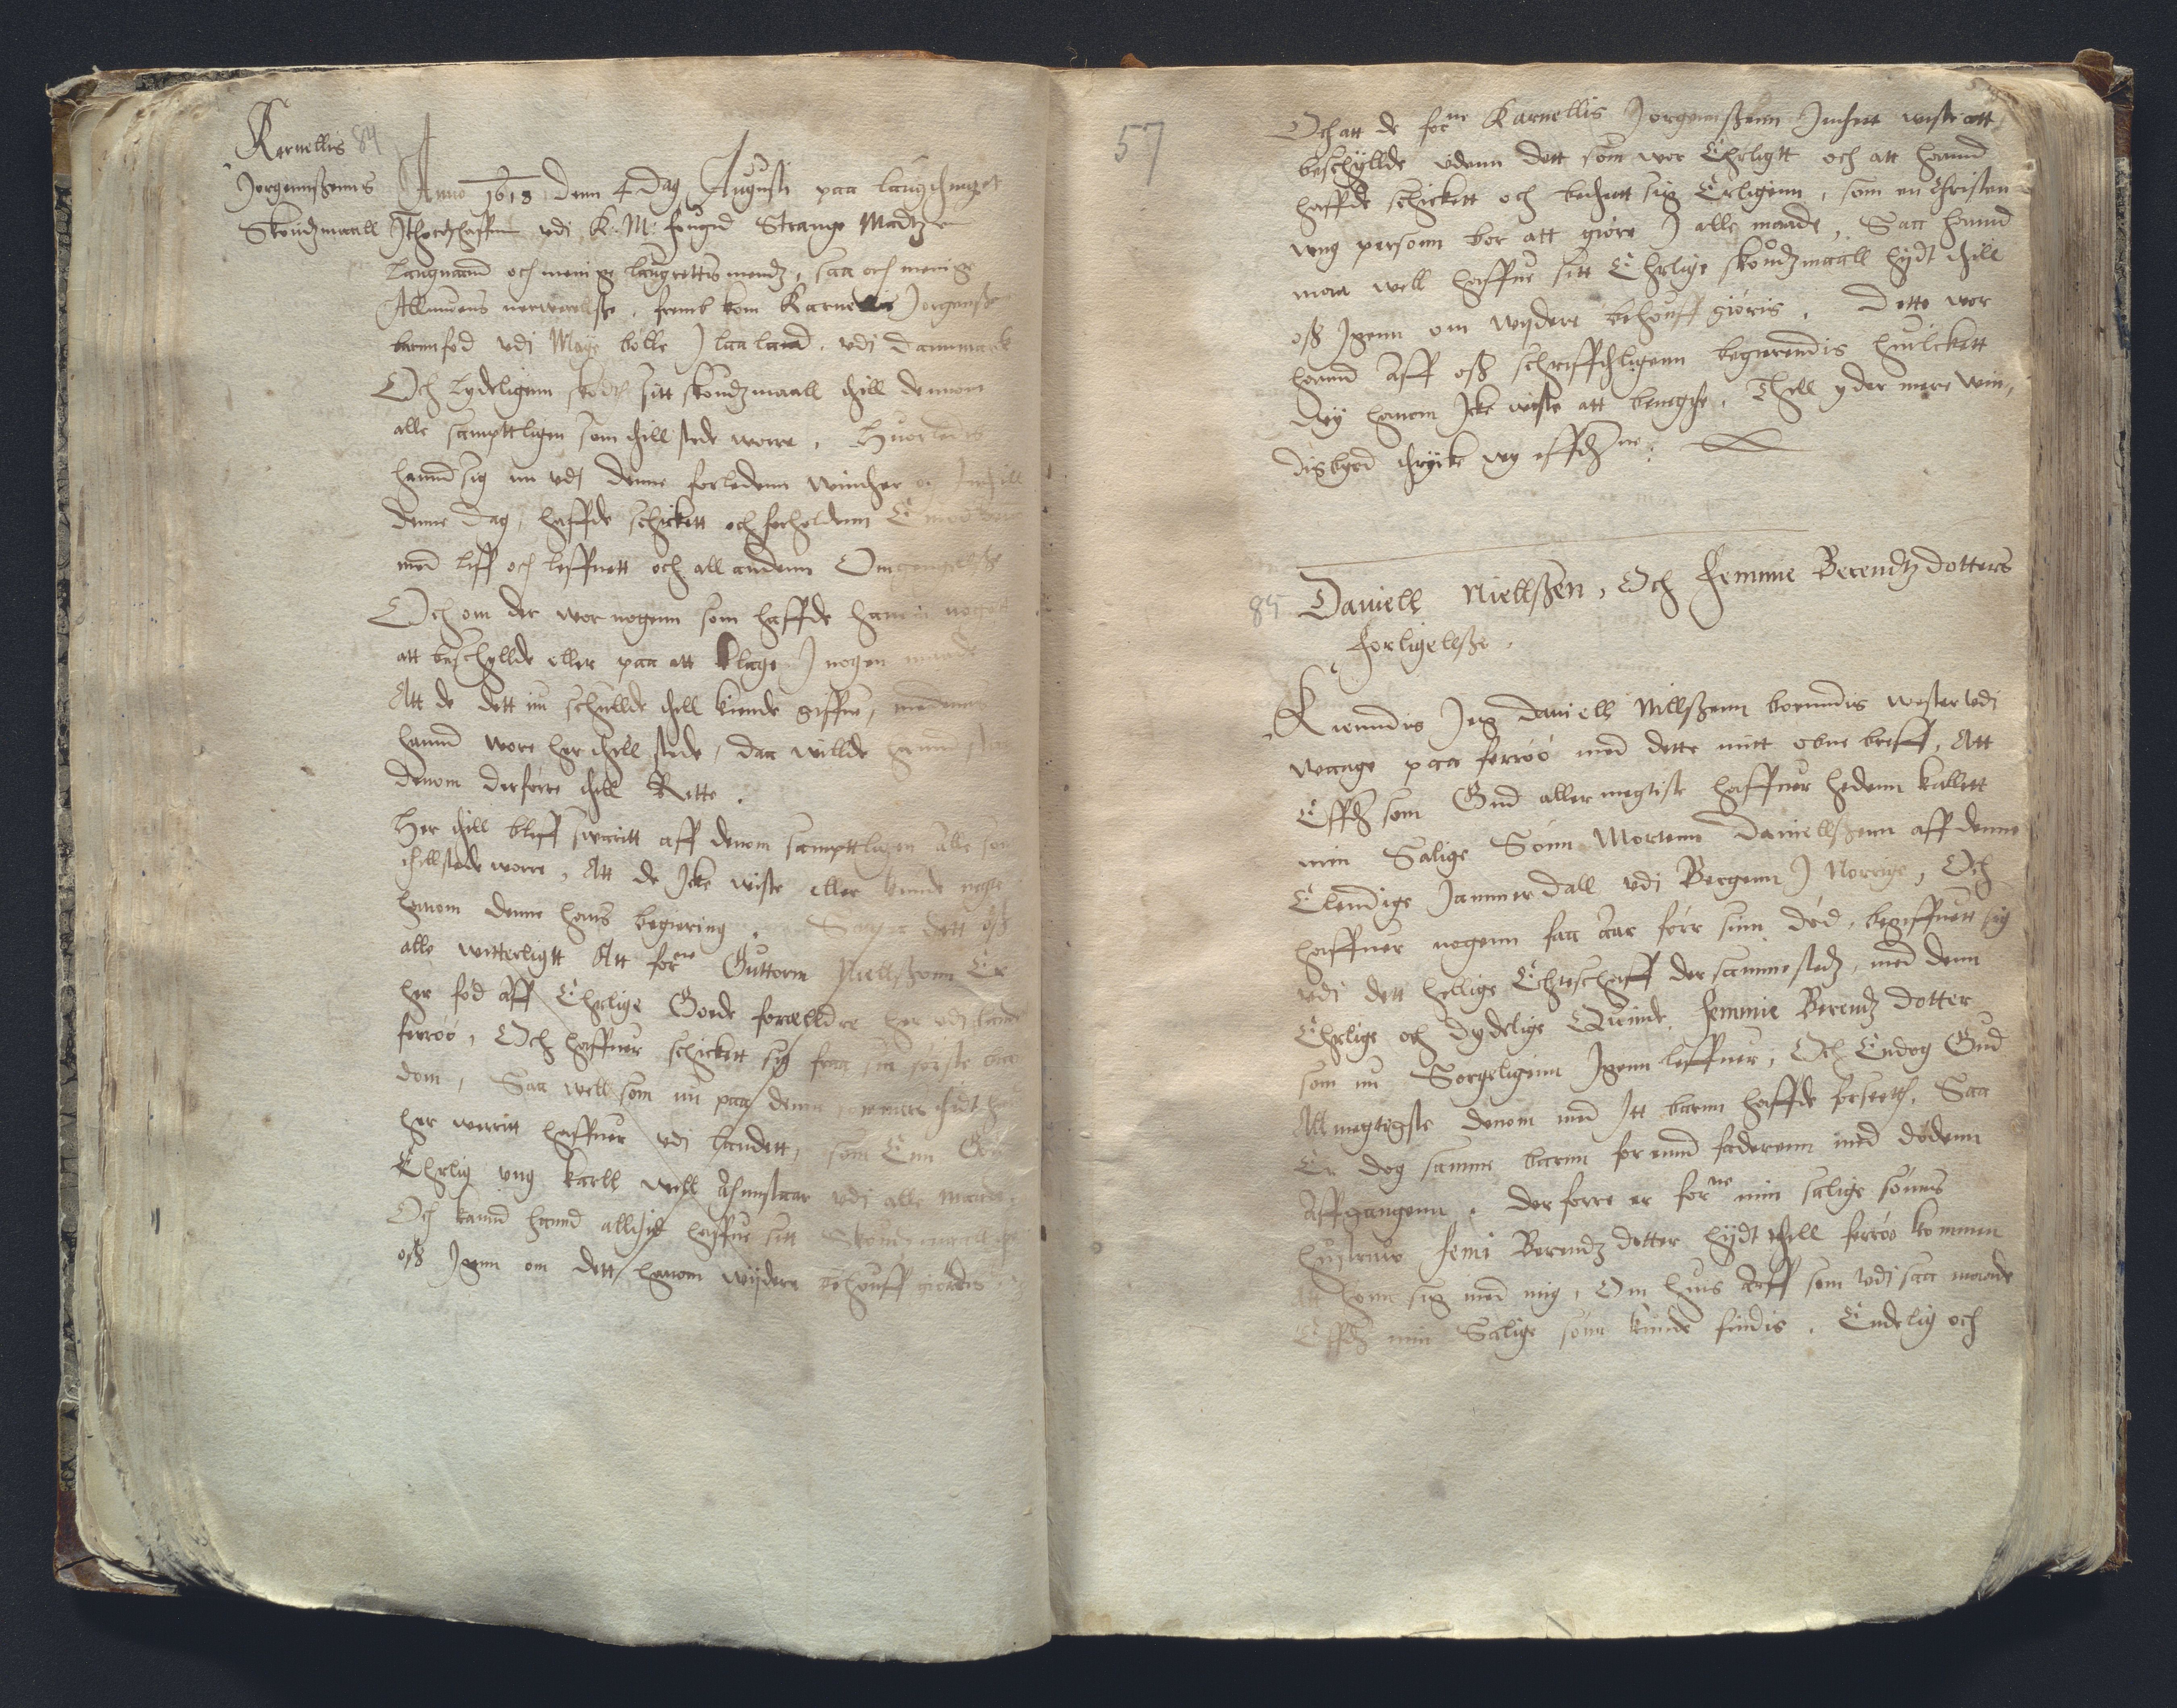 Karnellis 84
Jorgennßenns
Skoudzmaall
Anno 1618 Denn 4 Dag Augusti paa laugthinget
J Thorshaffnn vdj K: M: fougud Strange Madtzen
Laugmand och menige laugrettis mendz, saa och menige
Allmuens nerwerellße, fremb kom Karnellis Jorgenß
barnnfød vdj Mage bölle J laaland, vdj Danmark
Och Lydeligenn sit skoudzmaall thill dennom
alle sampttligen som thill stede worre, Huorledis
hannd sig nu vdj denne forledenn winther och Jnd thill
denne Dag, haffde schickett och forholdenn
med liff och leffnett och all andenn Omgengellße
Och om der wor nogenn som haffde hannem nogett
att beschyllde eller paa att klage J nogen maade
Att de dett nu schullde thill kiende giffue, medenns
hannd wore her thill stede, daa willde hannd
denom derførre thill Rette.
Her thill bleff swaritt aff denom sampttligen alle som
thillstede worre, Att de Jcke wiste eller kunde negte
hanom denne hans begiering. dett oß
alle witterligtt Att forne Guttorm Niellßonn Er
her fød aff Ehrlige Goede forælldre her vdj land
ferröö, Och haffuer schickett sig fraa sin første barn
dom, Saa well som nu paa denn sommers thid hand
her werritt haffuer vdj landett, som Enn God
Ehrlig vng karll well Ahnstaar vdj alle maade.
Och kannd hannd allthid haffue sitt Skoudzmaall
oß Jgenn om dett hanom wijdere behouff giordis
57
Och att de forne Karnellis Jorgennßenn Jnthet wiste att
beschyllde vdenn dett som wor Ehrligtt och att hannd
haffde schickett och bethett sig Erligenn, som en Christen
vng personn bør att giøre J alle maade, Saa hannd
maa well haffue sitt Ehrlige skoudzmaall hijdt thill
oß Jgenn om wijdere behouff giøris. Dette wor
hannd Aff oß schrifftligenn begierendis huilckett
wij hanom Jcke wiste att benegthe. Thill yder mere win,
disbyrd thrycke wy effthne:
85 Daniell Niellßen, Och Femmie Berendtz dotters
forligellße.
Kienndis Jeg Daniell Nillßenn boenndis wester vdj
waage paa ferröö med dette mitt obne breff, Att
Effth som Gud aller megtiste haffuer hedenn kallett
min Salige Sönn Mortenn Daniellßenn aff denne
Elendige Jammerdall vdj Bergenn J Norrige, Och
haffuer nogenn faa aar förr sinn død, begiffuett sig
vdj dett hellige Echteschaff der samme stedz, med denn
Ehrlige och Dydelige Quinde, Femmie Berendtz dotter
som nu Sorgeligenn Jgenn leffuer, Och Endog Gud
Allmegtigste denom med Itt barnn haffde forseeth, Saa
Er dog samme barnn for ennd faderenn med dødenn
Affgangenn. Derforre er forne min salige sønns
hustrue Femi Berendtz dotter hijdt thill ferröö kommen
Att honn sig med mig, Om huis Arff som vdj saa maade
Effth min Salige sönn kunde findis. Endelig och